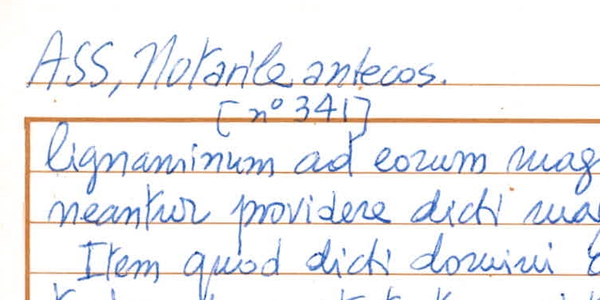 ASS, Notarile antecos.
[n° 341]
lignaminum ad eorum mag
neantur providere dicti ma
Item quod dicti domini